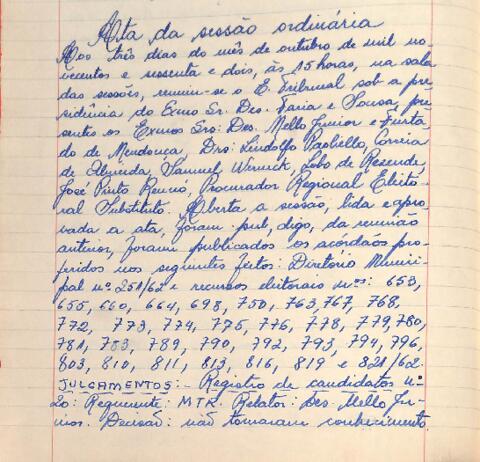 Ata da sessão ordinária
Aos três dias do mês de outubro de mil no-
vecentos e sessenta e dois, às 15 horas, na sala
das sessões, reuniu-se o E. Tribunal sob a pre-
sidência do Exmo Sr. Des. Faria e Sousa, pre-
sentes os Exmos Srs: Des. Mello Junior e Furta-
do de Mendonça, Drs: Lindolfo Paoliello, Correia
de Almeida, Samuel Werneck, Lobo de Resende,
José Pinto Renno, Procurador Regional Eleito-
ral Substituto. Aberta a sessão, lida e apro-
vada a ata, foram pub, digo, da reunião
anterior, foram publicados os acórdãos pro-
feridos nos seguintes feitos: Diretório Munici-
pal nº 251/62 e recursos eleitorais nºs: 653,
655, 660, 664, 698, 750, 763, 767, 768,
772, 773, 774, 775, 776, 778, 779, 780,
781, 783, 789, 790, 792, 793, 794, 796,
803, 810, 811, 813, 816, 819 e 821/62.
JULGAMENTOS:- Registro de candidatos nº
20: Requerente: MTR. Relator: Des. Mello Ju-
nior. Decisão: não tomaram conhecimento